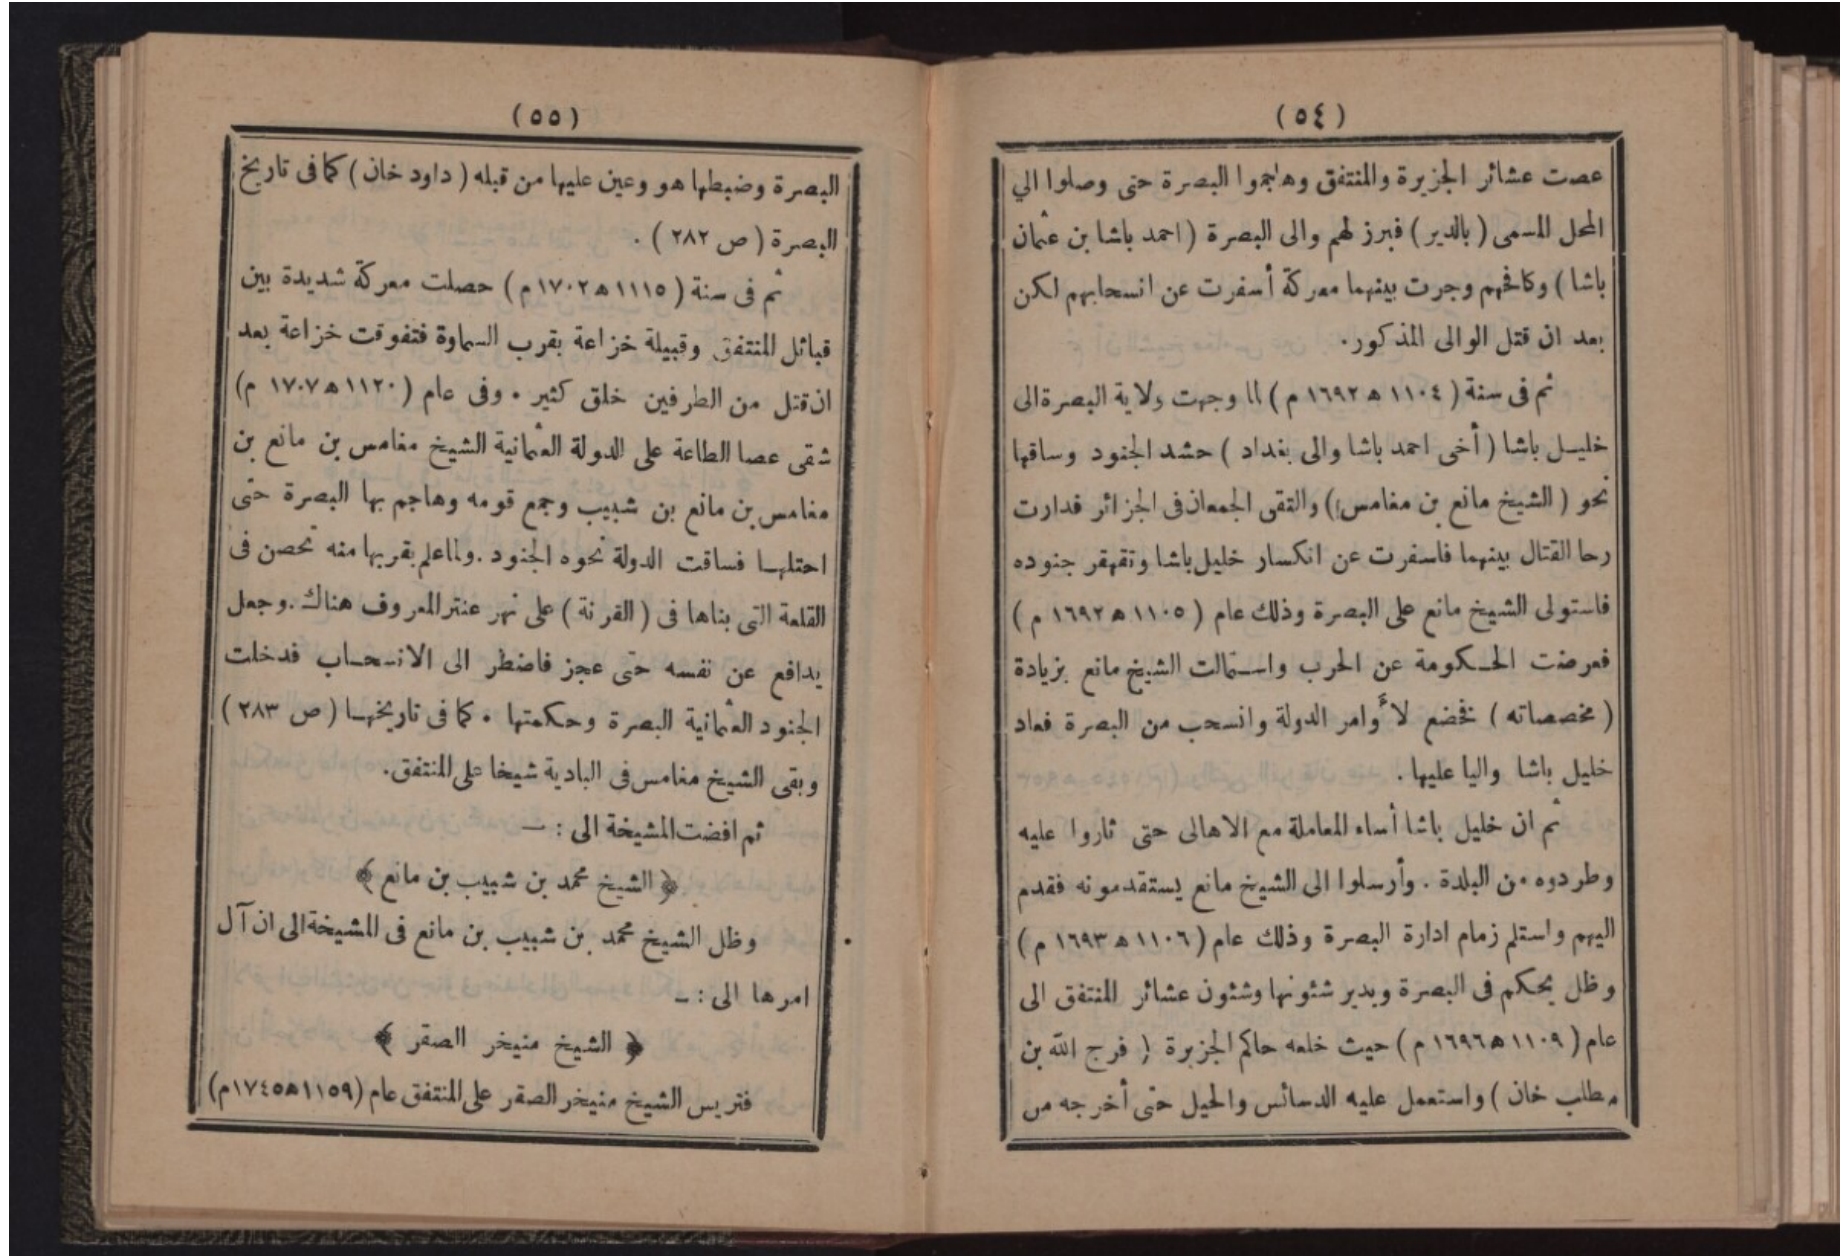 (٥٤)
عصت عشائر الجزيرة والمنتفق وهاجموا البصرة حتى وصلوا الي
المحل المسمى ( بالدير ) فبرز لهم والى البصرة ( احمد باشا بن عثمان
باشا ) وكافحهم وجرت بينهما معركة أسفرت عن انسحابهم لكن
بعد ان قتل الوالى المذكور.
ثم فى سنة ( ١١٠٤ ه ١٦٩٢ م ) لما وجهت ولاية البصرة الى
خليل باشا ( أخى احمد باشا والى بغداد ) حشد الجنود وساقها
نحو ( الشيخ مانع بن مغامس ) والتقى الجمعان فى الجزائر فدارت
رحا القتال بينهما فاسفرت عن انكسار خليل باشا وتقهقر جنوده
فاستولى الشيخ مانع على البصرة وذلك عام ( ١١٠٥ ه ١٦٩٢ م )
فعرضت الحكومة عن الحرب واستمالت الشيخ مانع بزيادة
( مخصصاته ) فخضع لأوامر الدولة وانسحب من البصرة فعاد
خليل باشا واليا عليها .
ثم ان خليل باشا أساء المعاملة مع الاهالى حتى ثاروا عليه
وطردوه من البلدة . وأرسلوا الى الشيخ مانع يستقدمونه فقدم
اليهم واستلم زمام ادارة البصرة وذلك عام ( ١١٠٦ ه ١٦٩٣ م )
وظل يحكم فى البصرة ويدير شئونها وشئون عشائر المنتفق الى
عام ( ١١٠٩ ه ١٦٩٦ م ) حيث خلعه حاكم الجزيرة ( فرج الله بن
مطلب خان ) واستعمل عليه الدسائس والحيل حتى أخرجه من
(٥٥)
البصرة وضبطها هو وعين عليها من قبله ( داود خان ) كما فى تاريخ
البصرة ( ص ٢٨٢ ) .
ثم فى سنة ( ١١١٥ ه ١٧٠٢ م ) حصلت معركة شديدة بين
قبائل المنتفق وقبيلة خزاعة بقرب السماوة فتفوقت خزاعة بعد
ان قتل من الطرفين خلق كثير . وفى عام ( ١١٢٠ ه ١٧٠٧ م )
شقى عصا الطاعة على الدولة العثمانية الشيخ مغامس بن مانع بن
مغامس بن مانع بن شبيب وجمع قومه وهاجم بها البصرة حتى
احتلها فساقت الدولة نحوه الجنود . ولما علم بقربها منه تحصن فى
القلعة التى بناها فى ( القرنة ) على نهر عنتر المعروف هناك . وجعل
يدافع عن نفسه حتى عجز فاضطر الى الانسحاب فدخلت
الجنود العثمانية البصرة وحكمتها . كما فى تاريخها ( ص ٢٨٣ )
وبقى الشيخ مغامس فى البادية شيخا على المنتفق.
ثم افضت المشيخة الى : —
﴿ الشيخ محمد بن شبيب بن مانع ﴾
وظل الشيخ محمد بن شبيب بن مانع فى المشيخة الى ان آل
امرها الى : –
﴿ الشيخ منيخر الصقر ﴾
فتريس الشيخ منيخر الصقر على المنتفق عام ( ١١٥٩ ه ١٧٤٥ م )